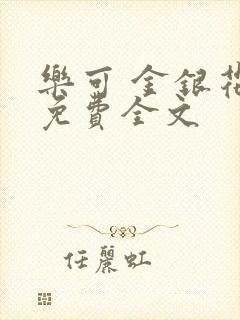 樂可 金銀花
免費全文
任麗虹